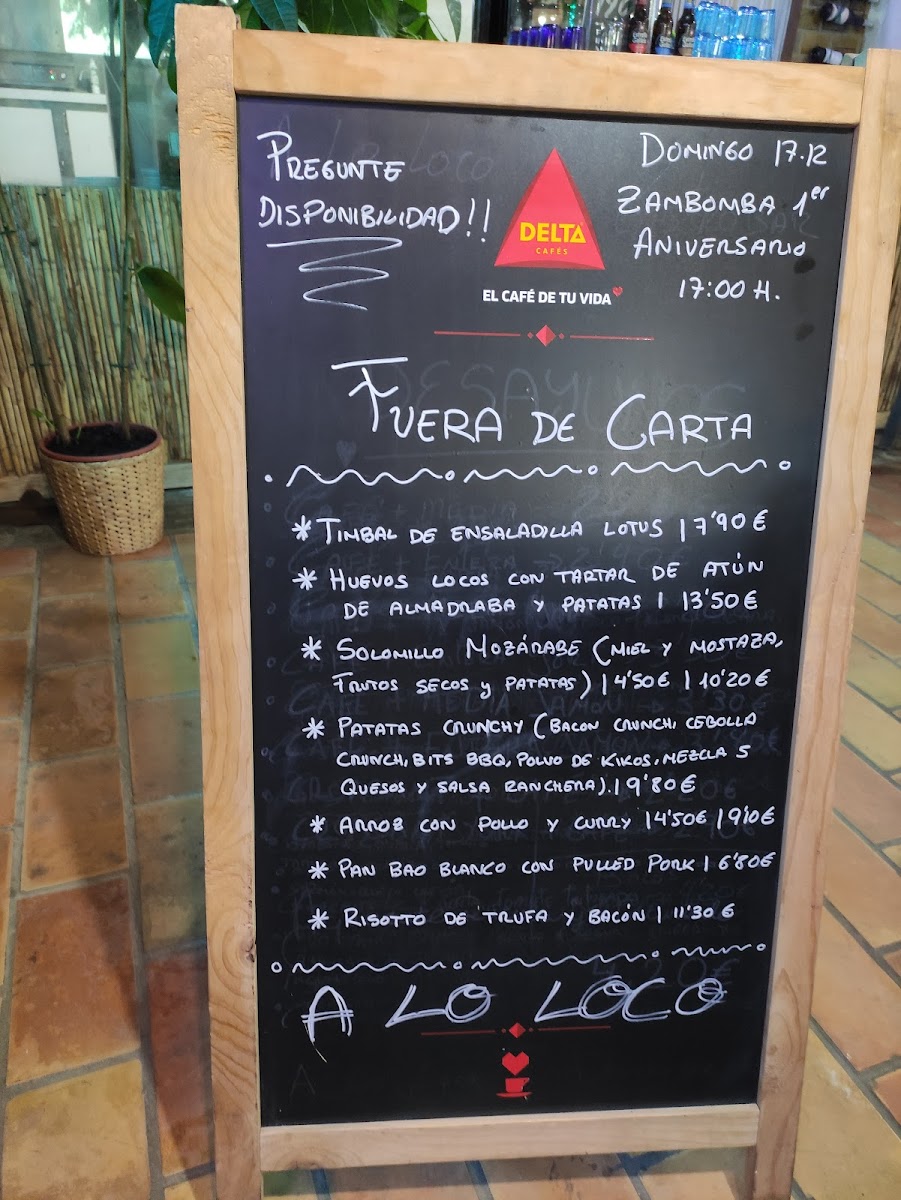 PREGUNTE
DISPONIBILIDAD!!
DELTA
CAFÉS
EL CAFÉ DE TU VIDA
DOMINGO 17.12
ZAMBOMBA 1er
ANIVERSARIO
17:00 H.
FUERA DE CARTA
* TIMBAL DE ENSALADILLA LOTUS | 7'90 €
* HUEVOS LOCOS CON TARTAR DE ATÚN
DE ALMADRABA Y PATATAS | 13'50 €
* SOLOMILLO MOZÁRABE (MIEL Y MOSTAZA,
FRUTOS SECOS Y PATATAS) | 4'50 € | 10'20 €
* PATATAS CRUNCHY (BACON CRUNCHI CEBOLLA
CRUNCH, BITS BBQ, POLVO DE KIKOS, MEZCLA 5
QUESOS Y SALSA RANCHERA). | 9'80 €
* ARROZ CON POLLO Y CURRY | 4'50€ | 9'10€
* PAN BAO BLANCO CON PULLED PORK | 6'80€
* RISOTTO DE TRUFA Y BACÓN | 11'30 €
A LO LOCO